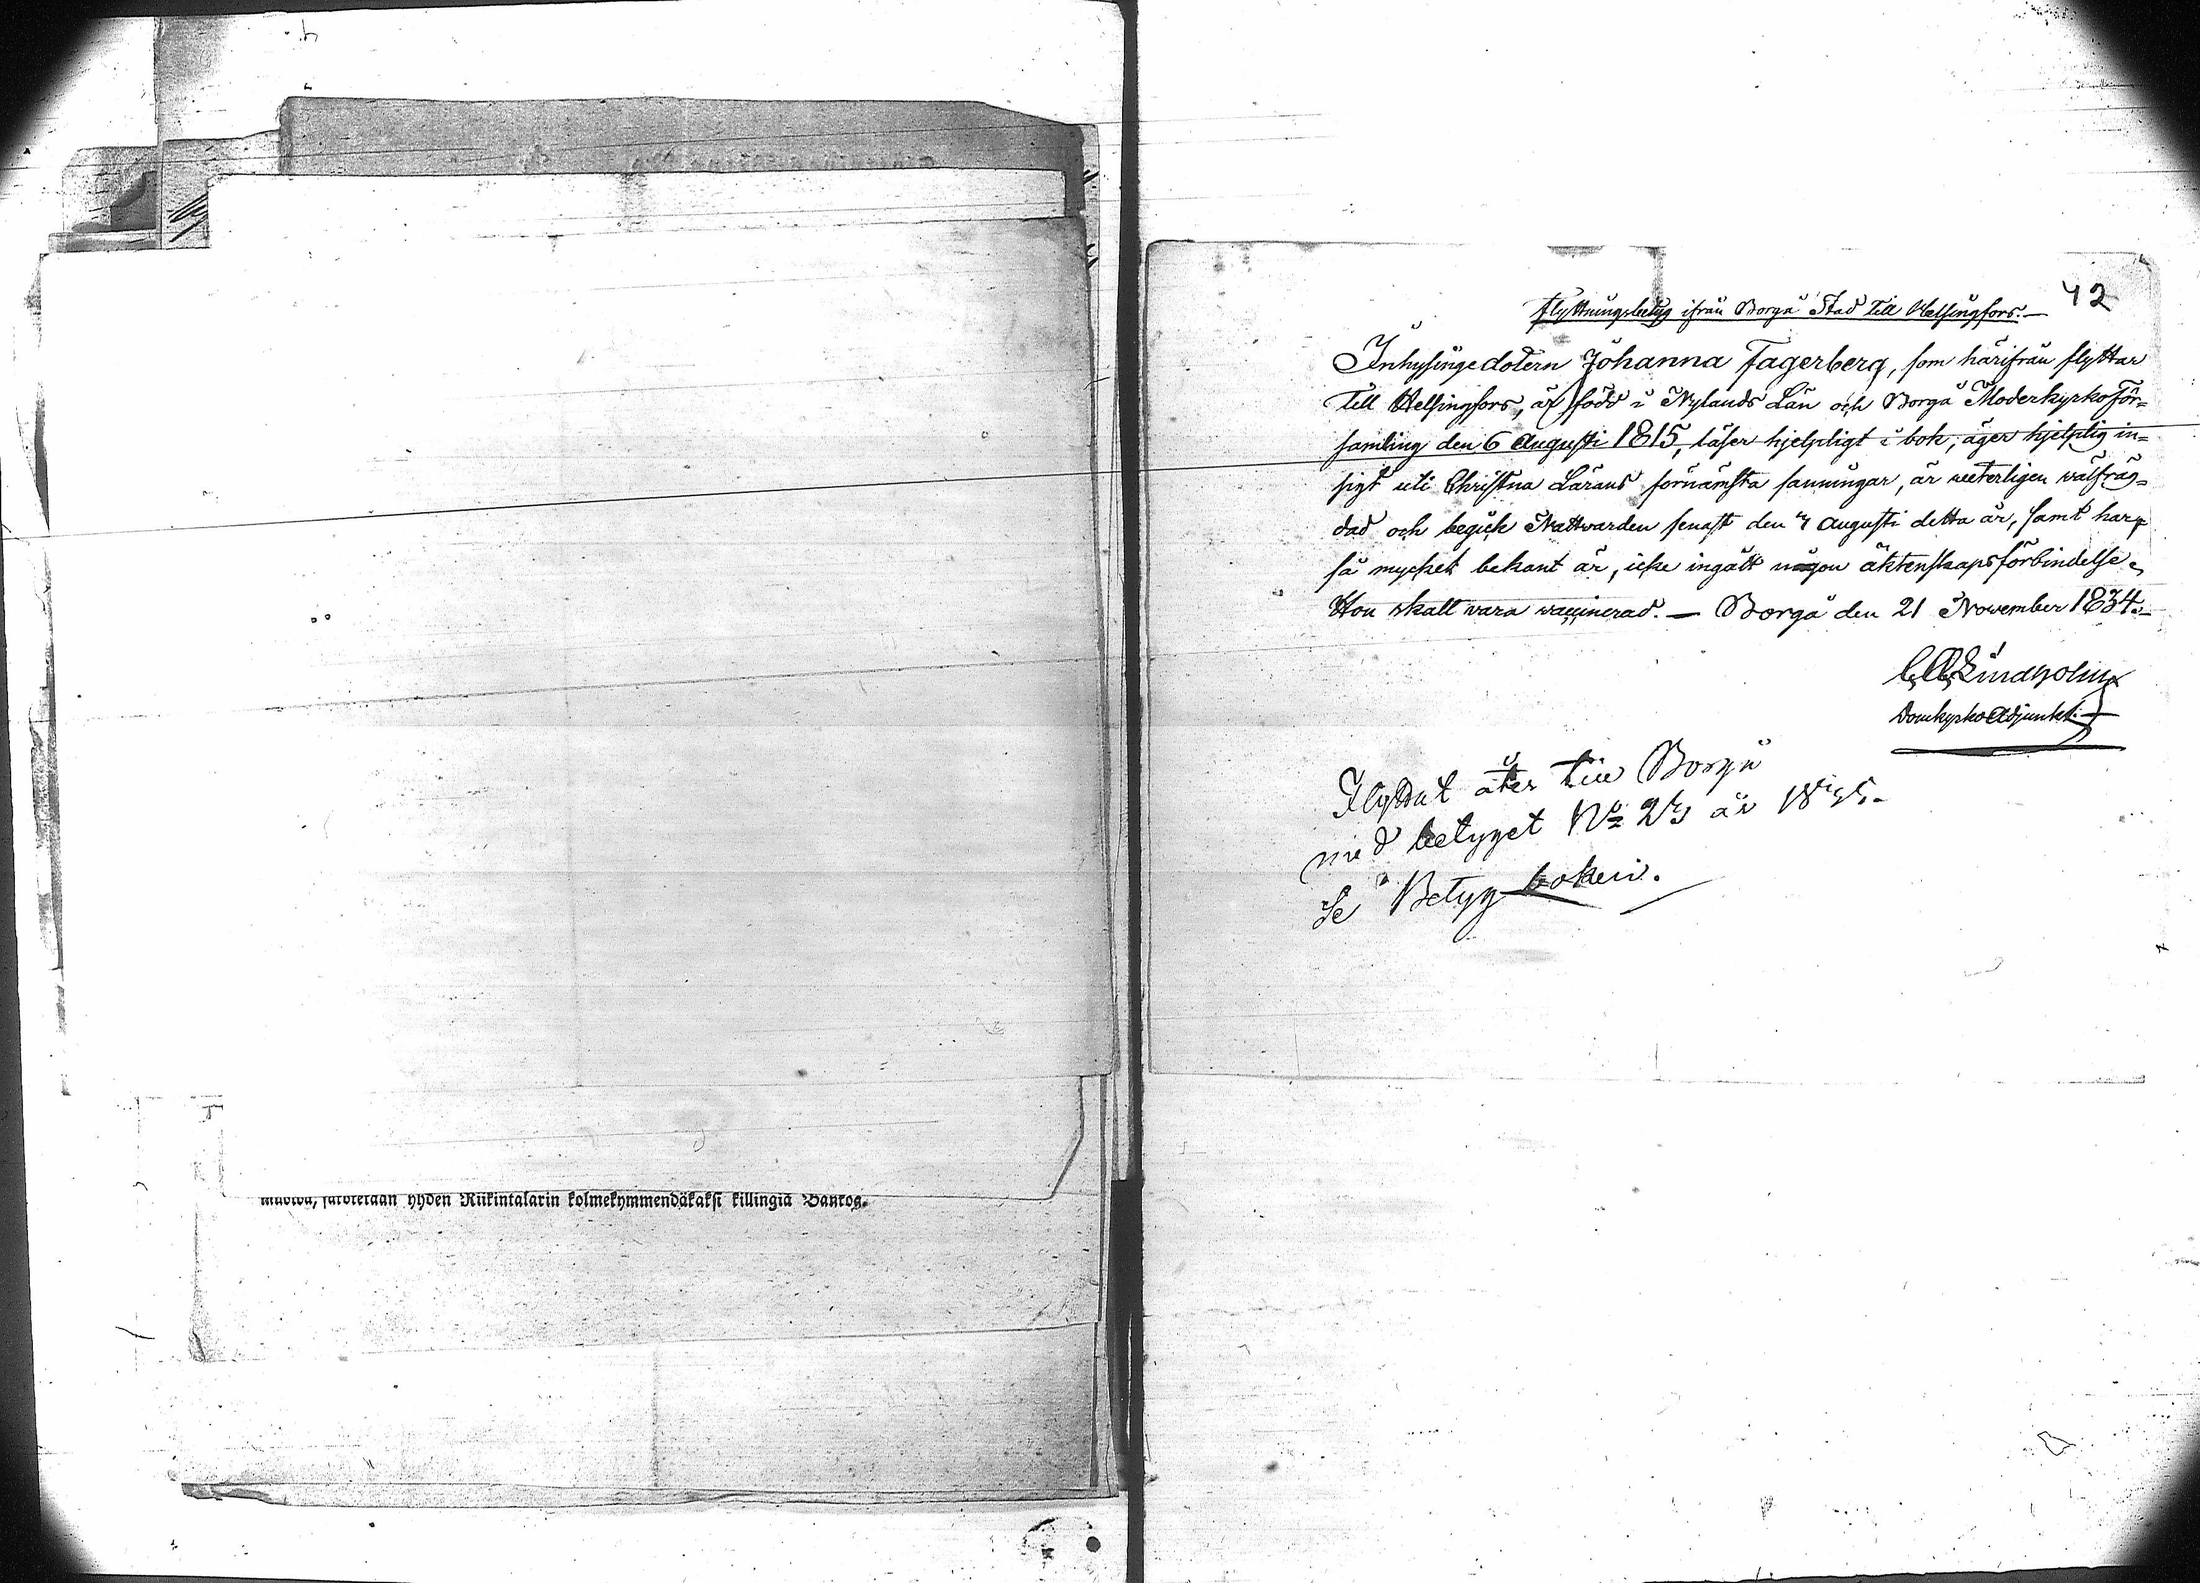 yhden Riikintalarin kolmekymmendäkaksi killingiä Bankog.
42
Flyttningsbetyg ifrån Borgå Stad till Helsingfors.—
Inhysingedotern Johanna Fagerberg, som härifrån flyttar
till Helsingfors, är född i Nylands Län och Borgå Moderkyrkoför=
samling den 6 Augusti 1815, läser hjelpligt i bok, äger hjelplig in=
sigt uti Christna Lärans förnämsta sanningar, är veterligen välfräg=
dad och begick Nattvarden senast den 4 Augusti detta år, samt har,
så mycket bekant är, icke ingått någon äktenskapsförbindelse.
Hon skall vara vaccinerad. — Borgå den 21 November 1834.—
Lindholm
Domkyrko Adjunkt.—
Flyttat åter till Borgå
med betyget No år
Se Betyg boken.